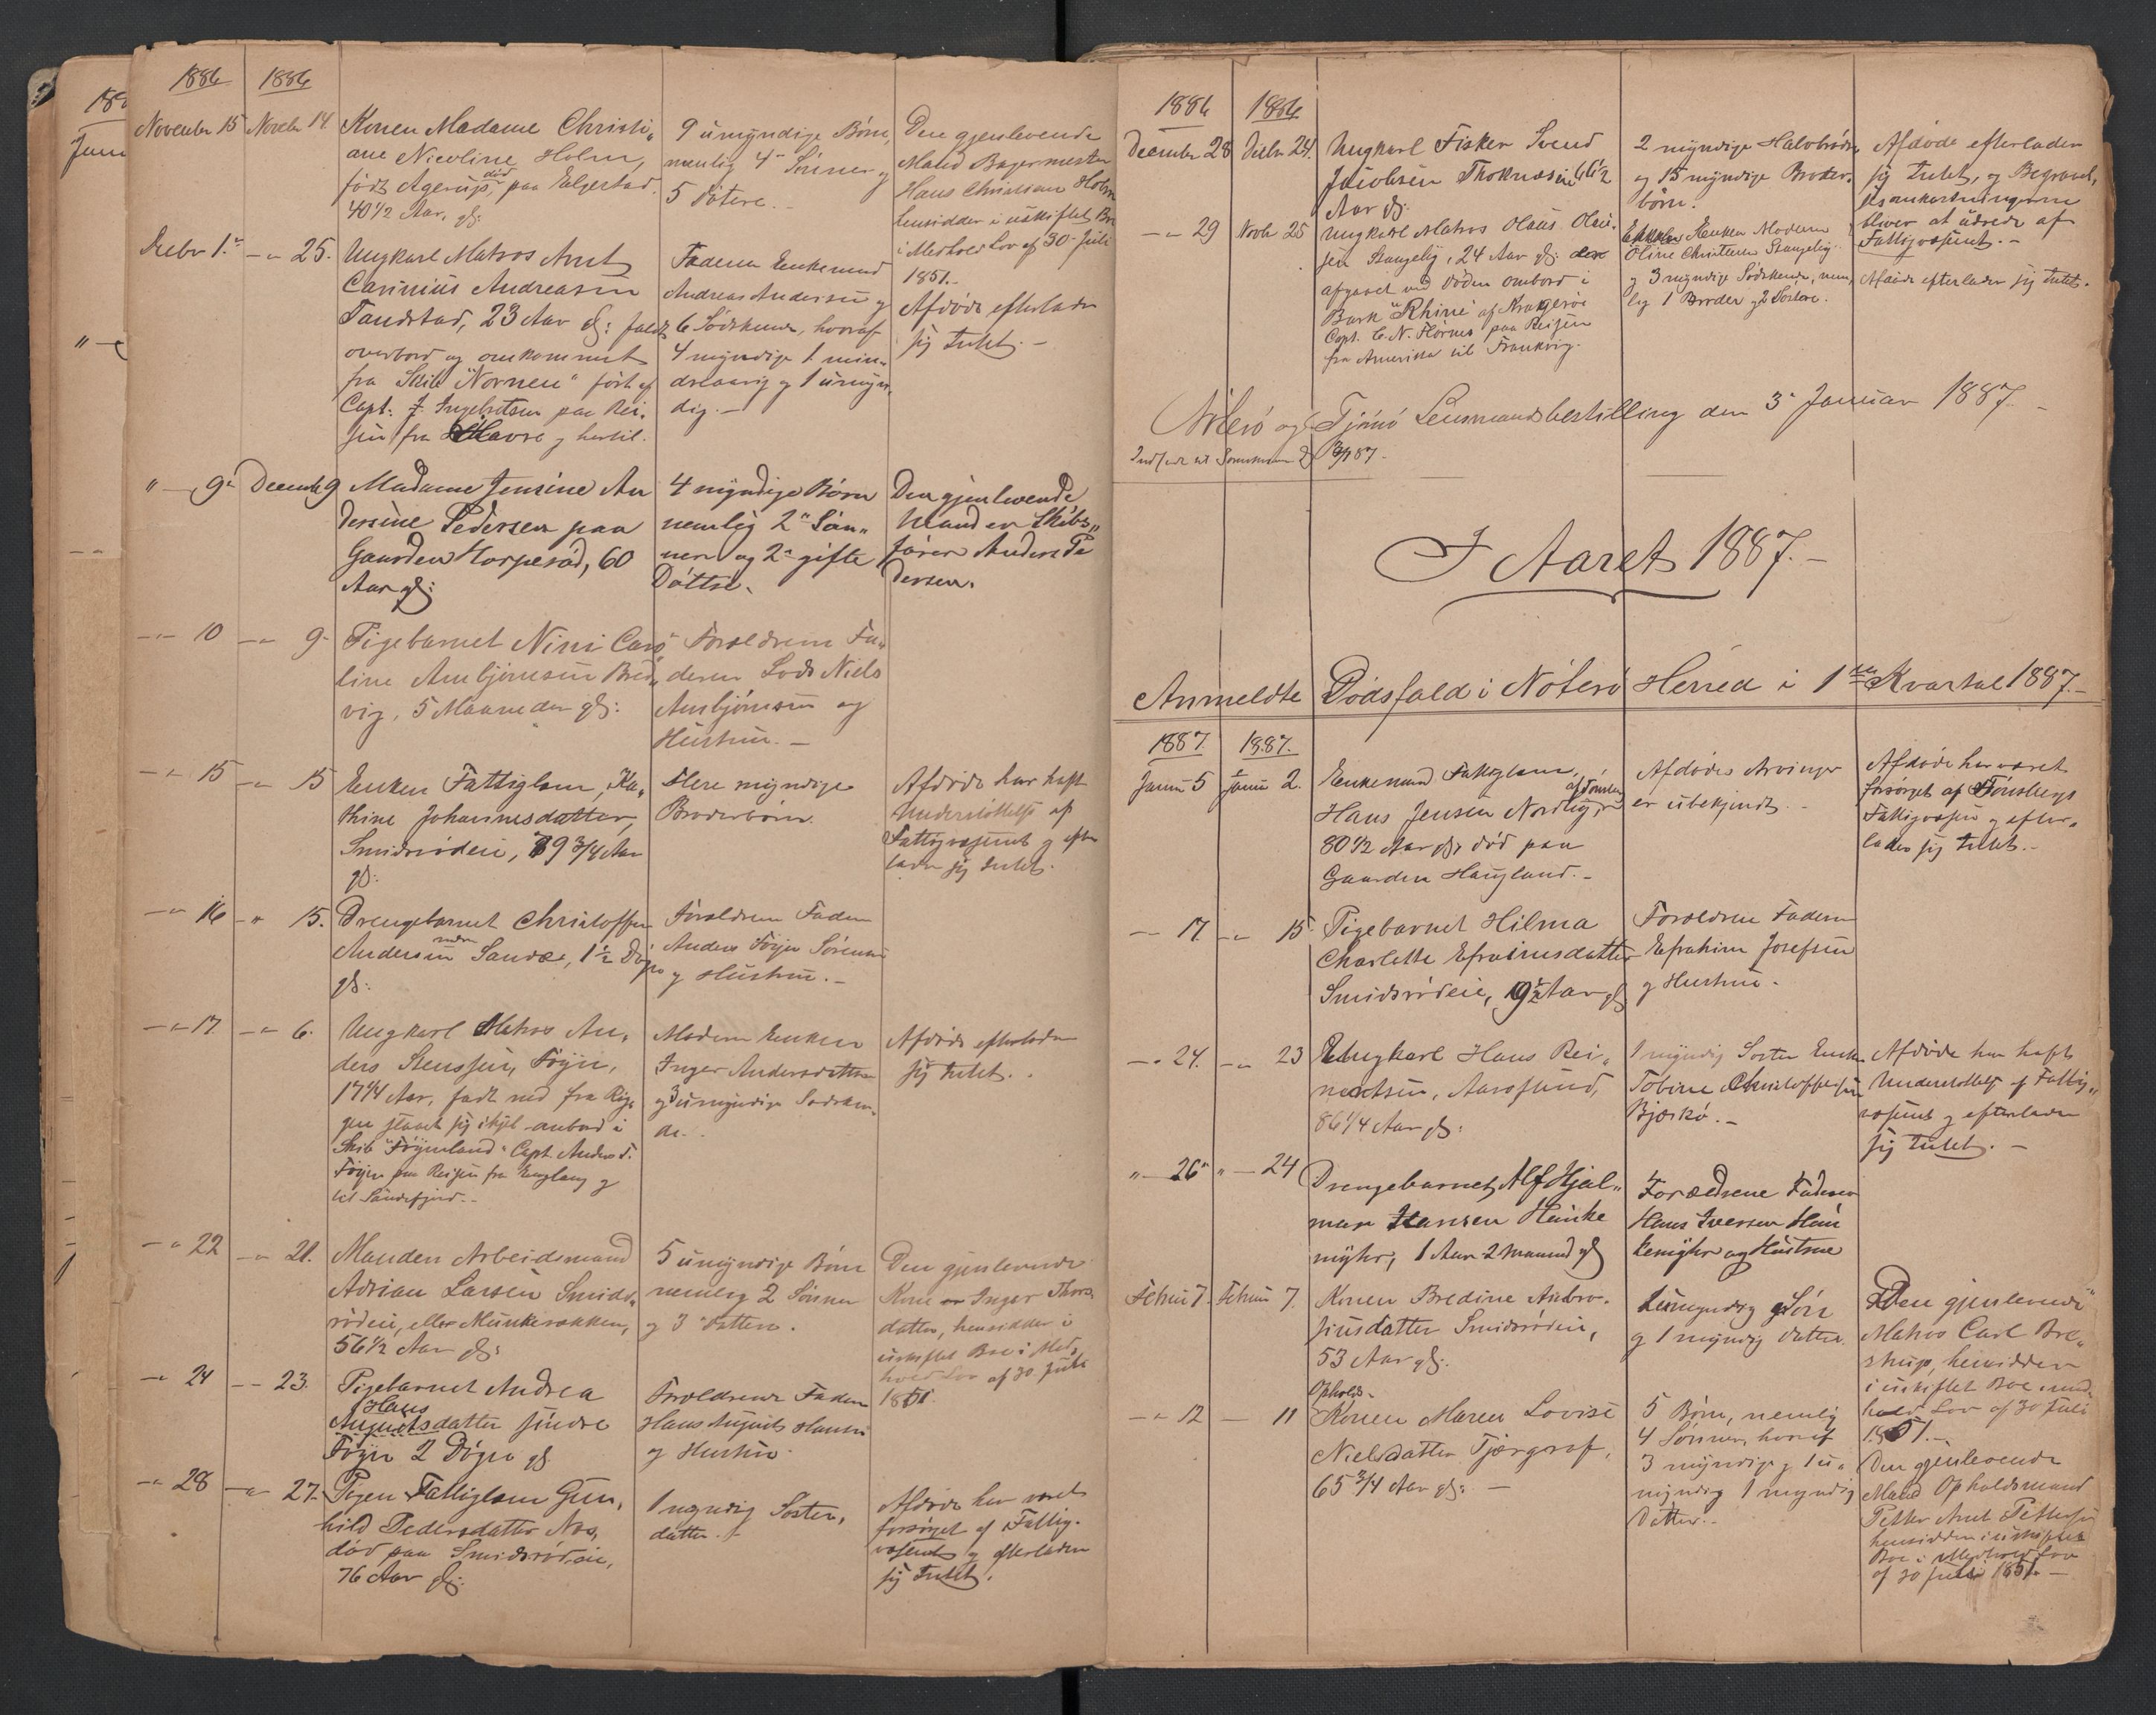 1886 1886
November 15 Novebr 14 Konen Madame Christi„
ane Nicoline Holm,
født Agerup, død paa Elgestad
40 1/2 Aar, gl:
9 umyndige Børn,
nemlig 4 Sønner og
5 Døtere.
Den gjenlevende
Mand Bagermester
Hans Christian Holm
hensidder i uskiftet Bo
i Medhold Lov af 30 Juli
1851.-
Debr 1. -"- 25. Ungkarl Matros Arnt
Carinius Andreasen
Tandstad, 23 Aar gl: faldt
overbord og omkommet
fra Skib "Nornen" ført af
Capt: J. Ingebretsen paa Rei„
sen fra Havre og hertil.
Faderen Enkemand
Andreas Andersen og
6 Sødskende, hvoraf
4 myndige 1 min„
dreaarig og 1 umyn„
dig.-
Afdøde efterlader
sig Intet.-
" - 9 Decembr 9 Madame Jensine An
dersine Pedersen paa
Gaarden Torpesød, 60
Aar gl:
4 myndige Børn
nemlig 2 Søn„
ner og 2 gifte
Døttre.
Den gjenlevende
Mand er Skibs„
fører Anders Pe
dersen.
-"- 10 -"- 9 Pigebarnet Nini Caro„
line Arnbjørnsen Bred„
vig, 5 Maaneder gl:
Foroldrene Fa„
deren Lods Niels
Arnbjørnsen og
Hustru.-
-"- 15 -"- 15 Enken Fattiglem, Ka„
thine Johannesdatter,
Smidsrødeie, 79 3/4 Aar
gl:
Flere myndige
Broderbørn.
Afdøde har havt
Understøttelse af
Fattigvæsenet og efter
lader sig Intet.
-"- 16 -"- 15. Drengebarnet Christoffer
Andersen Sandø, 1 1/2 Døgn
gl:
Foroldrene Faderen
Anders Føyn Sørensen
og Hustru.-
-"- 17 -"- 6. Ungkarl Matros An„
ders Stenssen, Føyn,
17 1/4 Aar, faldt ned fra Rig„
gen slaaet sig ihjel ombord i
Skib "Føynland" Capt Anders F.
Føyn paa Reisen fra England og
til Sandefjord.-
Moderen Enken
Inger Andersdatter
og 3 umyndige Sødsken„
de.-
Afdøde efterlader
sig Intet.-
-"- 22 -"- 21. Manden Arbeidsmand
Adrian Larsen Smids„
rødeie, eller Munkerekken,
56 1/2 Aar gl:
5 umyndige Børn
nemlig 2 Sønner
og 3 Døttere.
Den gjenlevende
Kone Inger Thors„
datter, hensidder i
uskiftet Bo i Med„
hold Lov af 30 Juli
1851.
-"- 24 -"- 23. Pigebarnet Andrea
Hans
Augustsdatter søndre
Føyn 2 Døgn gl
Foroldrene Faderen
Hans August Hansen
og Hustru.
-"- 28 -"- 27. Pigen Fattiglem Gun„
hild Pedersdatter Nes,
død paa Smidsrødeie,
76 Aar gl:
1 myndig Søster„
datter.
Afdøde har været
forsørget af Fattig„
væsenet og efterlader
sig Intet.
1886 1886
December 28 Debr 24. Ungkarl Fisker Svend
Jacobsen Thorenæsen 66 1/2
Aar gl:
2 myndige Halvbrødre
og 15 myndige Broder„
børn.
Afdøde efterlader
sig Intet, og Begravel„
sesomkostningerne
bliver at udrede af
Fattigvæsenet.-
-"- 29 Novbr 25 Ungkarl Matros Olaus Olau„
sen Stangeby, 24 Aar gl:
afgaaet ved Døden ombord i
Bark "Rhine" af Kragerøe
Capt. C. N. Hornes paa Reisen
fra Amerika til Frankrig.
Enken Moderen
Oline Christensen Stangeby
og 3 myndige Sødskende, nem„
lig 1 Broder og 2 Søstere.
Afdøde efterlader sig Intet.
Nøterø og Tjømø Lensmandsbestilling den 3 Januar 1887.-
Indsendt til Sorenskriveren d 3/1 87.
I Aaret 1887.-
Anmeldte Dødsfald i Nøterø Herred i 1ste Kvartal 1887.-
1887. 1887.
Janu 5 Janu 2. Enkemand Fattiglem,
Hans Jensen Nordbyg, af Tønsberg
80 1/2 Aar gl: død paa
Gaarden Haugland.-
Afdødes Arvinger
er ubekjendt.-
Afdøde har været
forsørget af Tønsbergs
Fattigvæsen og efter„
lader sig Intet.-
-"- 17. -"- 15. Pigebarnet Hilma
Charlotte Efraimsdatter
Smidsrødeie, 9 1/2 Aar gl
Foroldrene Faderen
Efrahim Josefsen
og Hustru.
-"- 24. -"- 23 Ungkarl Hans Rei„
nertsen, Aarøsund,
86 1/4 Aar gl:
1 myndig Søster Enken
Tobine Christoffersen
Bjerkø.-
Afdøde har havt
Understøttelse af Fattig„
væsenet og efterlader
sig Intet.-
" - 26 " - 24 Drengebarnet Alf Hjal„
mar Hansen Hunke
myhr, 1 Aar 2 Maaned gl
Forældrene Faderen
Hans Iversen Hun
kemyhr og Hustrue
Febru 7. Febru 7. Konen Bredine Ambro„
siusdatter Smidsrødeie,
53 Aar gl:
1 umyndig Søn
og 1 myndig Datter.
Den gjenlevende
Matros Carl Bre„
strup, hensidder
i uskiftet Boe i med„
hold Lov af 30 Juli
1851.-
-"- 12 - 11 Opholds-
Konen Maren Lovise
Nielsdatter Tjærgraf,
65 3/4 Aar gl: -
5 Børn, nemlig
4 Sønner, hvoraf
3 myndige og 1 u„
myndig 1 myndig
Datter.-
Den gjenlevende
Mand Opholdsmand
Petter Arnt Pettersen
hensidder i uskiftet
Boe i Medhold Lov
af 30 Juli 1851.-